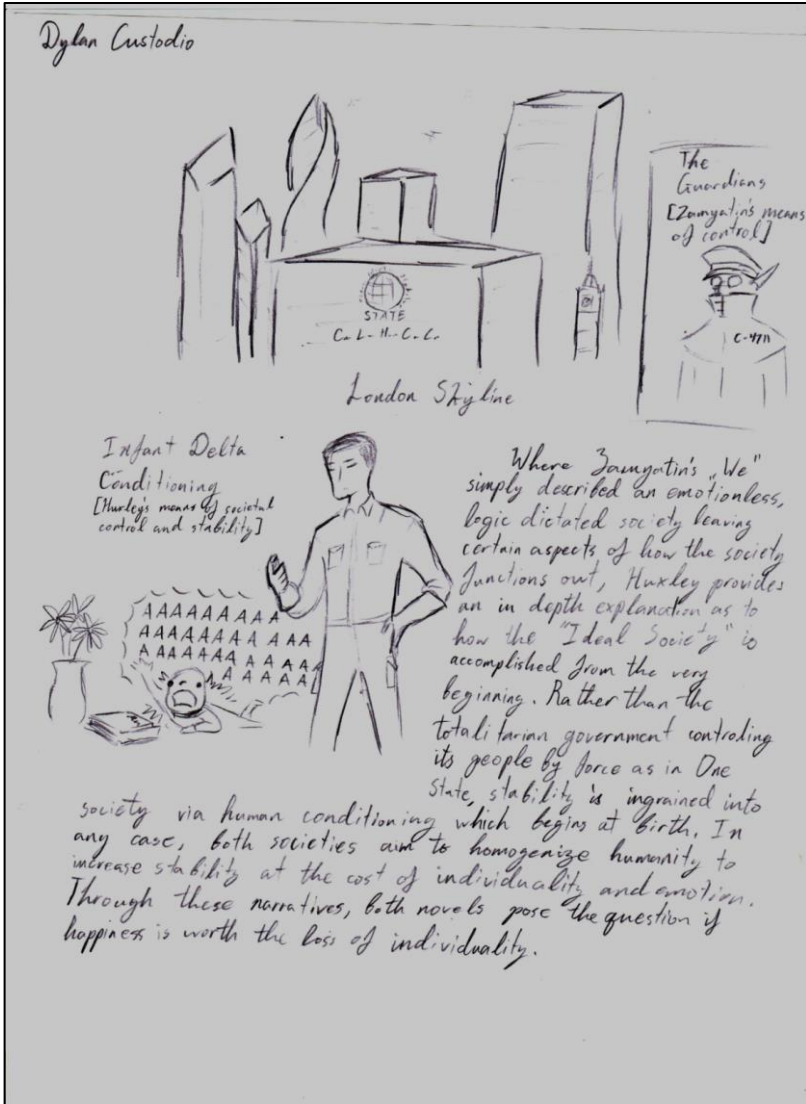 Dylan Custodio
The
Guardians
[Zamyatin's means
of control]
C-4711
STATE
C. L. H. C. C.
London Skyline
Infant Delta
Conditioning
[Huxley's means of societal
control and stability]
AAAAAAAAA
AAAAAAAAAA
AAAAAAAAAA
AAAAA
Where Zamyatin's „We"
simply described an emotionless,
logic dictated society leaving
certain aspects of how the society
functions out, Huxley provides
an in depth explanation as to
how the "Ideal Society" is
accomplished from the very
beginning. Rather than the
totalitarian government controling
its people by force as in One
State, stability is ingrained into
society via human conditioning which begins at birth. In
any case, both societies aim to homogenize humanity to
increase stability at the cost of individuality and emotion.
Through these narratives, both novels pose the question if
happiness is worth the loss of individuality.